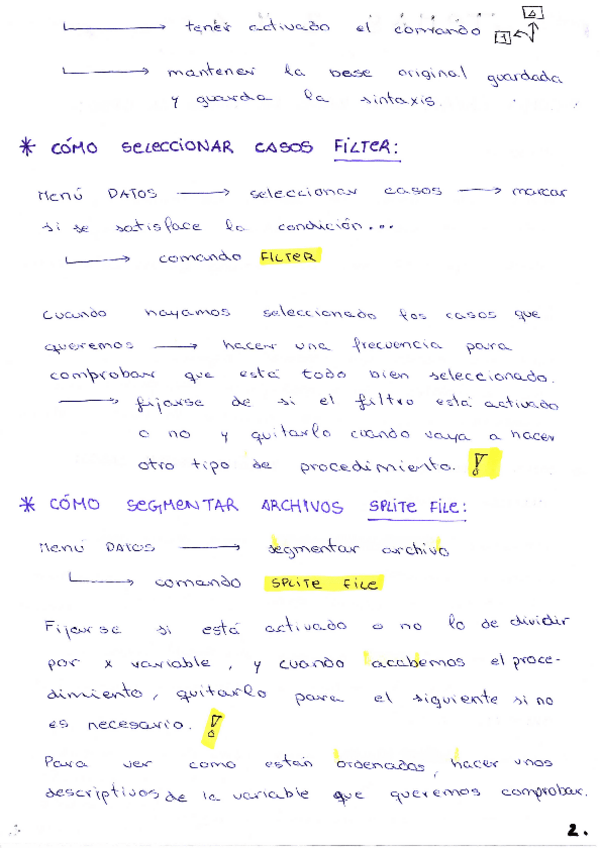 → tener activado el comando 1 A
→ mantener la base original guardada
y guarda la sintaxis.
* CÓMO SELECCIONAR CASOS FILTER:
Menú DATOS → seleccionar casos → marcar
si se satisface la condición...
→ comando FILTER
Cuando hayamos seleccionado los casos que
queremos → hacer una frecuencia para
comprobar que está todo bien seleccionado.
→ fijarse de si el filtro está activado
o no y quitarlo cuando vaya a hacer
otro tipo de procedimiento. !
* CÓMO SEGMENTAR ARCHIVOS SPLITE FILE:
Menú DATOS → segmentar archivo
→ comando SPLITE FILE
Fijarse si está activado o no lo de dividir
por x variable, y cuando acabemos el proce-
dimiento, quitarlo para el siguiente si no
es necesario. !
Para ver como están ordenadas, hacer unos
descriptivos de la variable que queremos comprobar.
2.